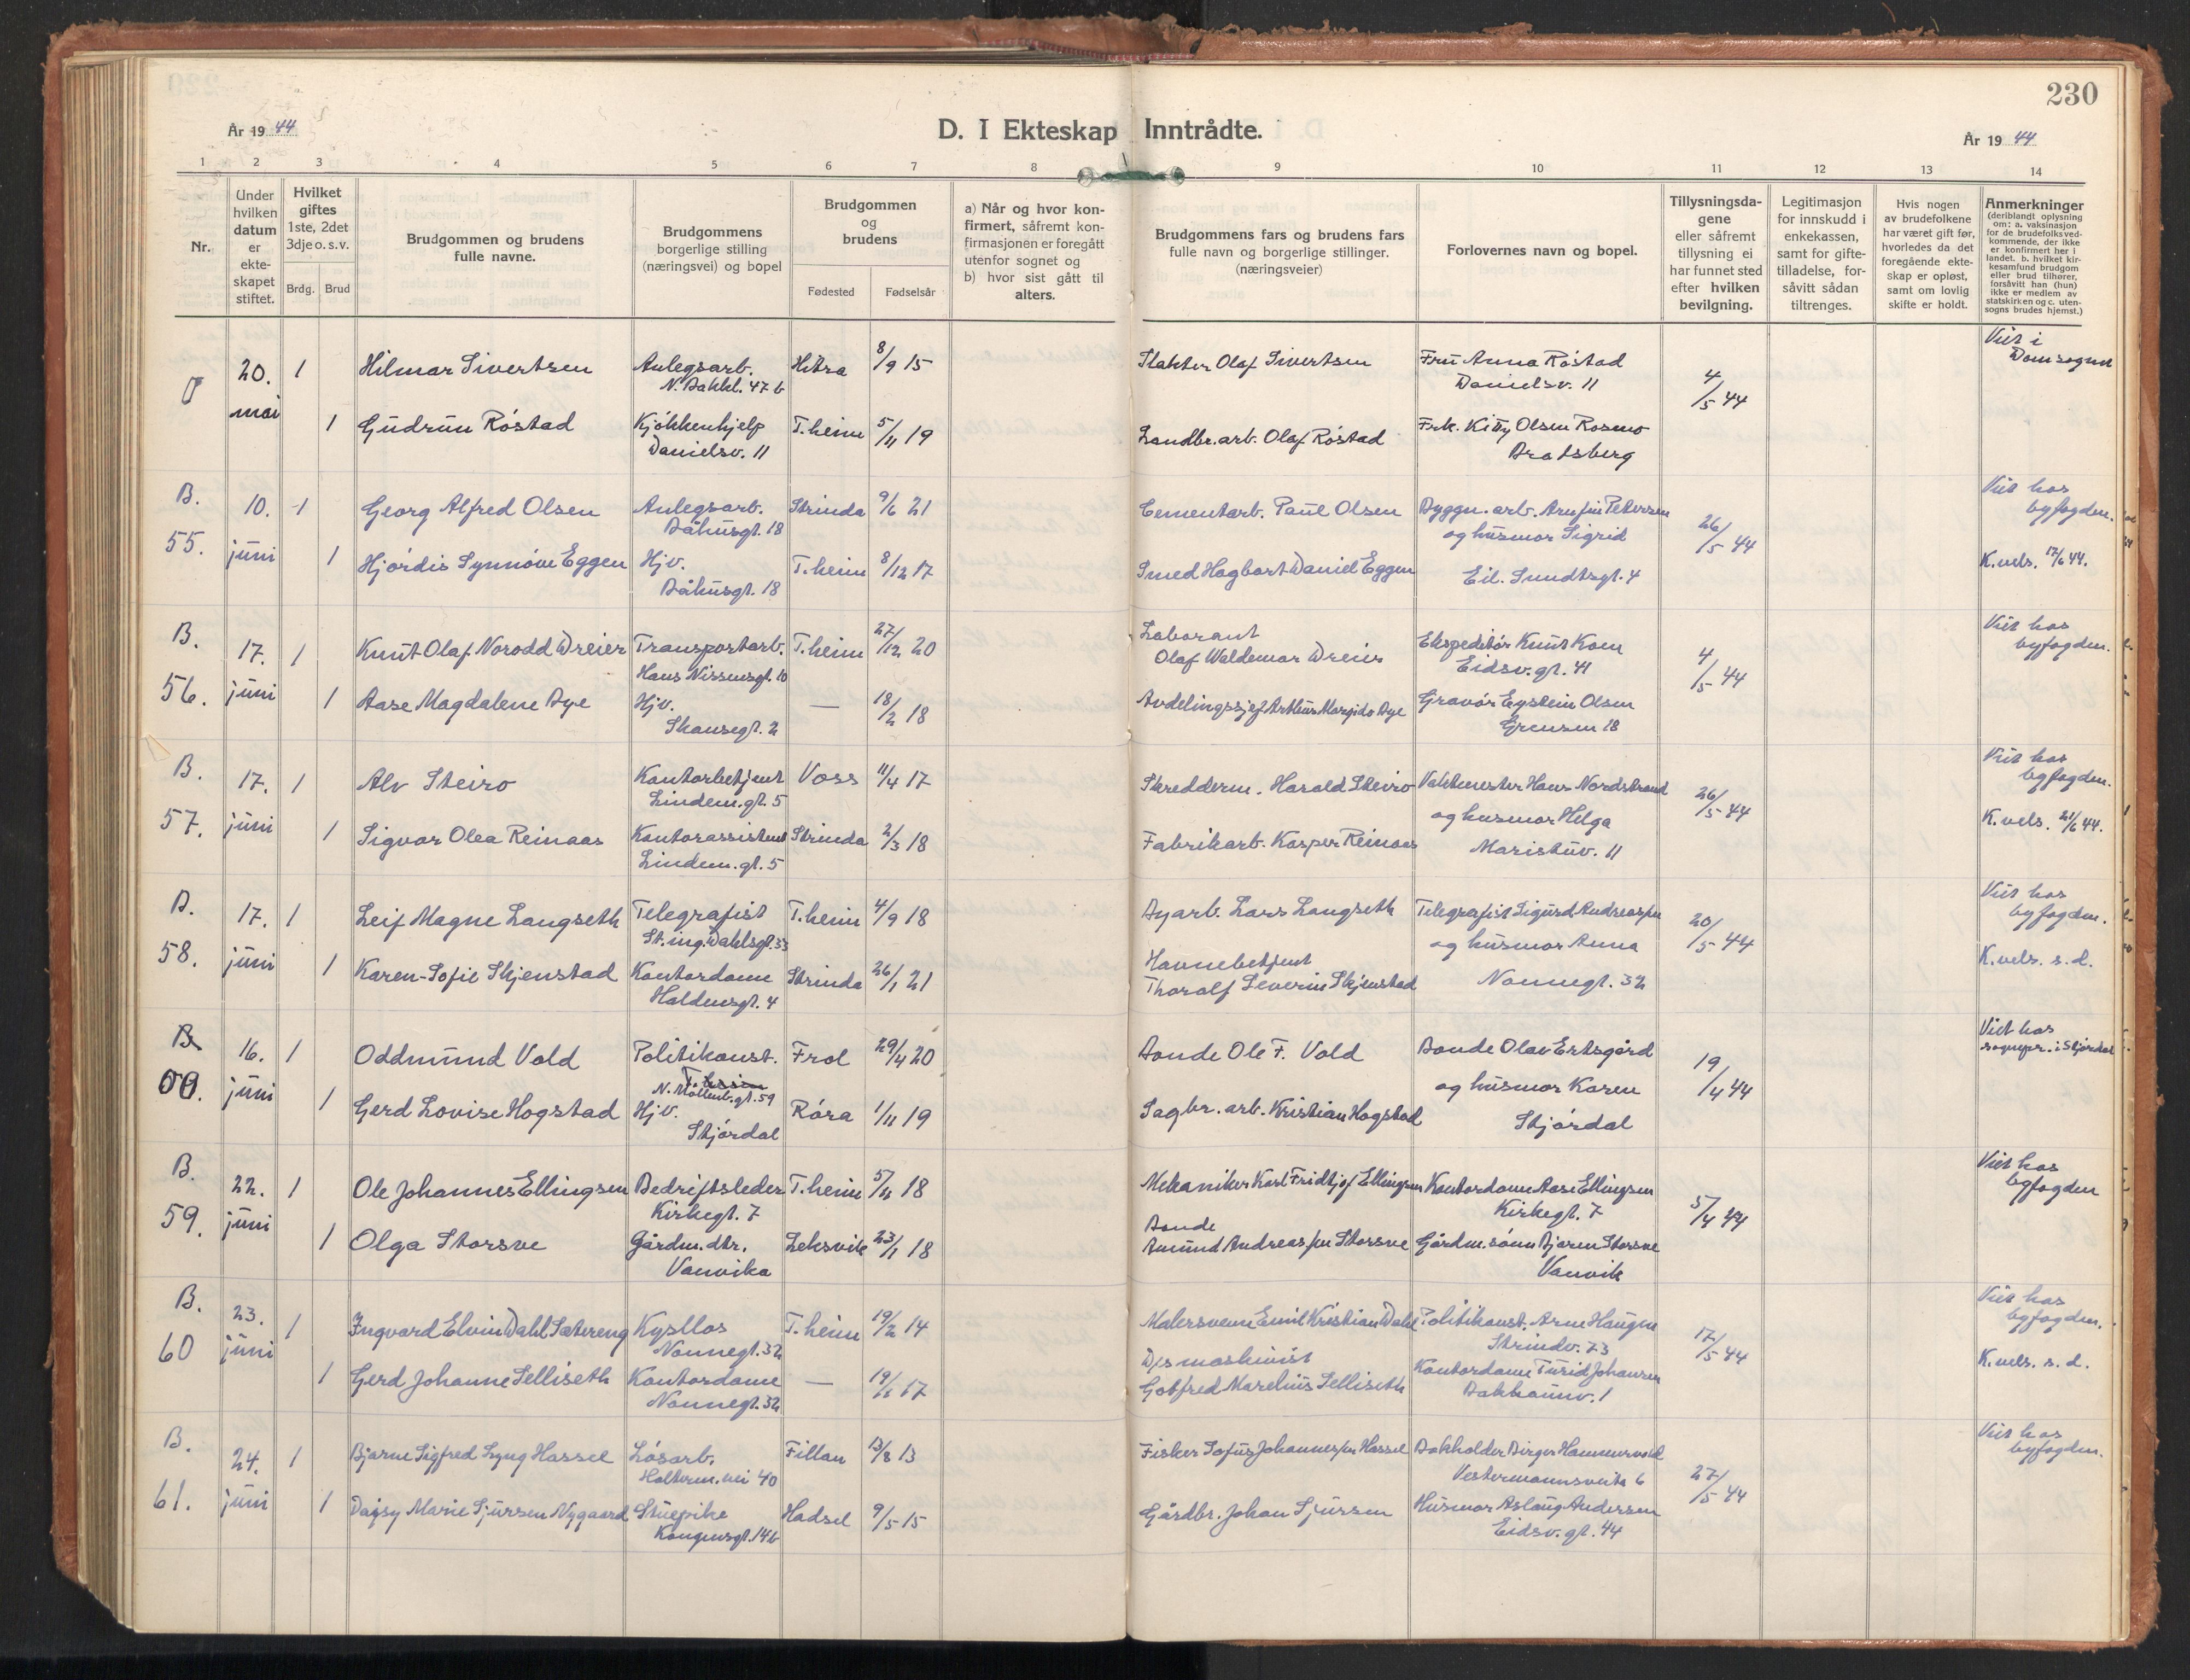 230
År 19 44
D. I Ekteskap Inntrådte.
År 19 44
1 2 3 4 5 6 7 8 9 10 11 12 13 14
Nr.
Under hvilken datum er ekteskapet stiftet.
Hvilket giftes 1ste, 2det 3dje o. s. v.
Brdg. Brud
Brudgommen og brudens fulle navne.
Brudgommens borgerlige stilling (næringsvei) og bopel
Brudgommen og brudens
Fødested Fødselsår
a) Når og hvor konfirmert, såfremt konfirmasjonen er foregått utenfor sognet og
b) hvor sist gått til alters.
Brudgommens fars og brudens fars fulle navn og borgerlige stillinger. (næringsveier)
Forlovernes navn og bopel.
Tillysningsdagene eller såfremt tillysning ei har funnet sted efter hvilken bevilgning.
Legitimasjon for innskudd i enkekassen, samt for giftetilladelse, forsåvitt sådan tiltrenges.
Hvis nogen av brudefolkene har været gift før, hvorledes da det foregående ekteskap er opløst, samt om lovlig skifte er holdt.
Anmerkninger (deriblandt oplysning om: a. vaksinasjon for de brudefolksvedkommende, der ikke er konfirmert her i landet. b. hvilket kirkesamfund brudgom eller brud tilhører, forsåvitt han (hun) ikke er medlem av statskirken og c. utensogns brudes hjemst.)
20. mai 1 Hilmar Sivertsen Anlegsarb. N. Bakkl. 47 b Hitra 8/9 15 Slakter Olaf Sivertsen Fru Anna Röstad Danielsv. 11 4/5 44 Viet i Domsognet
1 Gudrun Röstad Kjökkenhjelp Danielsv. 11 T.heim 5/11 19 Landbr.arb. Olaf Röstad Frk. Kitty Olsen Rosmo Bratsberg
B. 55. 10. juni 1 Georg Alfred Olsen Anlegsarb. Båhusgt. 18 Strinda 9/6 21 Cementarb. Paul Olsen Byggn. arb. Arnfin Petersen og husmor Sigrid 26/5 44 Viet hos byfogden.
1 Hjördis Synnöve Eggen Hjv. Båhusgt. 18 T.heim 8/12 17 Smed Hagbart Daniel Eggen Eil. Sundtsgt. 4 K.vels. 17/6 44.
B. 56. 17. juni 1 Knut Olaf Norodd Dreier Transportarb. Hans Nissensgt. 10 T.heim 27/12 20 Laborant Olaf Waldemar Dreier Ekspeditör Knut Koen Eidsv. gt. 41 4/5 44 Viet hos byfogden.
1 Aase Magdalene Bye Hjv. Skansegt. 2 — 18/2 18 Avdelingssjef Arthur Margido Bye Gravör Eystein Olsen Grensen 18
B. 57. 17. juni 1 Alv Steiro Kontorbetjent Lindem. gt. 5 Voss 11/4 17 Skredderm. Harald Steiro Vaktmester Hans Nordstrand og husmor Helga 26/5 44 Viet hos byfogden.
1 Sigvor Olea Reinaas Kontorassistent Lindem. gt. 5 Strinda 2/3 18 Fabrikarb. Kasper Reinaas Maristuv. 11 K.vels. 21/6 44.
B. 58. 17. juni 1 Leif Magne Langseth Telegrafist St.ing. Dahlsgt. 33 T.heim 4/9 18 Byarb. Lars Langseth Telegrafist Sigurd Andreassen og husmor Anna 20/5 44 Viet hos byfogden.
1 Karen-Sofie Skjenstad Kontordame Haldensgt. 4 Strinda 26/1 21 Havnebetjent Thoralf Severin Skjenstad Nonnegt. 32 K.vels. s. d.
16. juni 1 Oddmund Vold Politikonst. T.heim N. Möllenb. gt. 59 Frol 29/4 20 Bonde Ole F. Vold Bonde Olav Ertsgård og husmor Karen 19/4 44 Viet hos sognepr. i Stjördal
1 Gerd Lovise Hogstad Hjv. Stjördal Röra 1/11 19 Sagbr. arb. Kristian Hogstad Stjördal
B. 59. 22. juni 1 Ole Johannes Ellingsen Bedriftsleder Kirkegt. 7 T.heim 5/11 18 Mekaniker Karl Fridtjof Ellingsen Kontordame Aase Ellingsen Kirkegt. 7 5/4 44 Viet hos byfogden
1 Olga Storsve Gårdm. dtr. Vanvika Leksvik 23/1 18 Bonde Amund Andreassen Storsve Gårdm. sönn Bjaren Storsve Vanvik
B. 60 23. juni 1 Ingvard Elvin Dahl Sætereng Kysllos Nonnegt. 32 T.heim 19/2 14 Malersvenn Emil Kristian Dahl Politikonst. Arne Haugen Strindv. 73 17/5 44 Viet hos byfogden.
1 Gerd Johanne Selliseth Kontordame Nonnegt. 32 — 17 D/s maskinist Gotfred Marelius Selliseth Kontordame Turid Johansen Bakkaunv. 1 K.vels. s. d.
B. 61. 24. juni 1 Bjarne Sigfred Lyng Hassel Lösarb. Halterm. vei 40 Fillan 13/8 13 Fisker Sofus Johannessen Hassel Bokholder Birger Hammervold Vestermannsveita 6 27/5 44 Viet hos byfogden.
1 Dagsy Marie Sjursen Nygaard Stuepike Kongensgt. 14b Hadsel 9/5 15 Gårdbr. Johan Sjursen Husmor Aslaug Andersen Eidsv. gt. 44